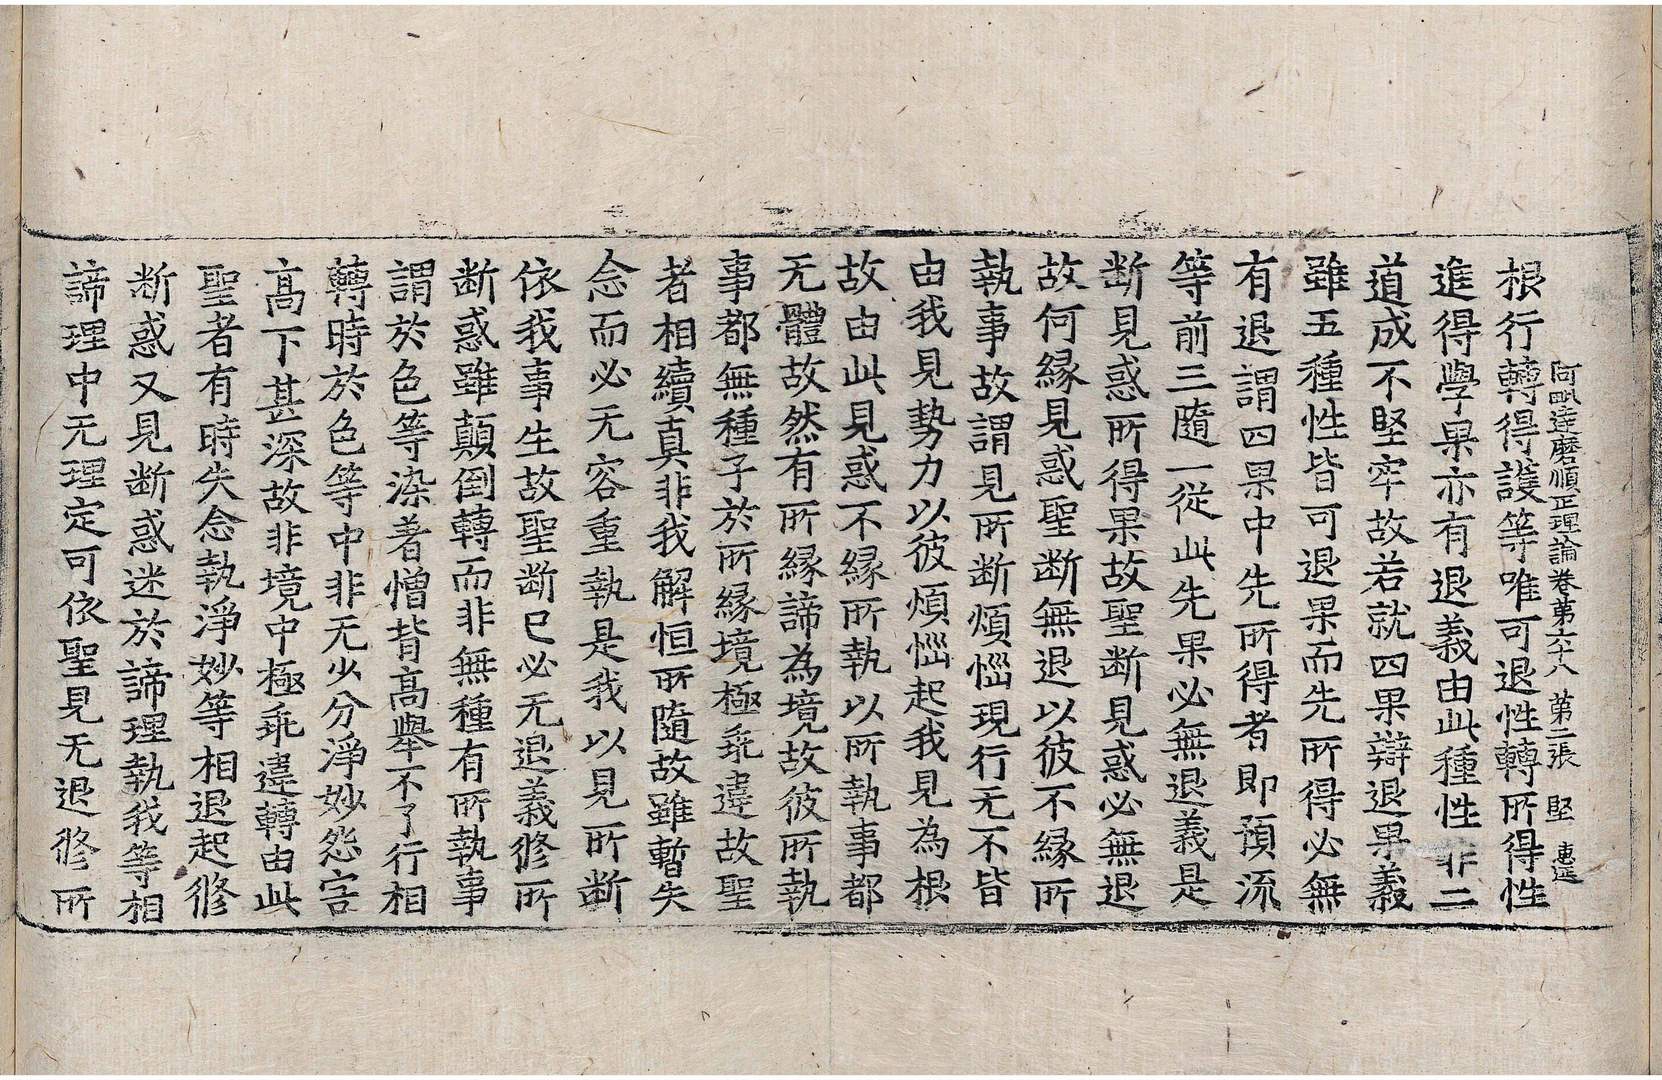 阿毗達磨順正理論卷第六十八　第二張　堅　惠進
根行轉得護等唯可退性轉所得性
進得學果亦有退義由此種性非二
道成不堅牢故若就四果辯退果義
雖五種性皆可退果而先所得必無
有退謂四果中先所得者即預流
等前三隨一從此先果必無退義是
断見惑所得果故聖断見惑必無退
故何縁見惑聖断無退以彼不縁所
執事故謂見所断煩惱現行无不皆
由我見勢力以彼煩惱起我見為根
故由此見惑不縁所執以所執事都
无體故然有所縁諦為境故彼所執
事都無種子於所縁境極乖違故聖
者相續真非我解恒所隨故雖暫失
念而必无容重執是我以見所断
依我事生故聖断已必无退義修所
断惑雖顛倒轉而非無種有所執事
謂於色等染著憎背高舉不了行相
轉時於色等中非无少分淨妙怨害
高下甚深故非境中極乖違轉由此
聖者有時失念執淨妙等相退起修
断惑又見断惑迷於諦理執我等相
諦理中无理定可依聖見无退修所